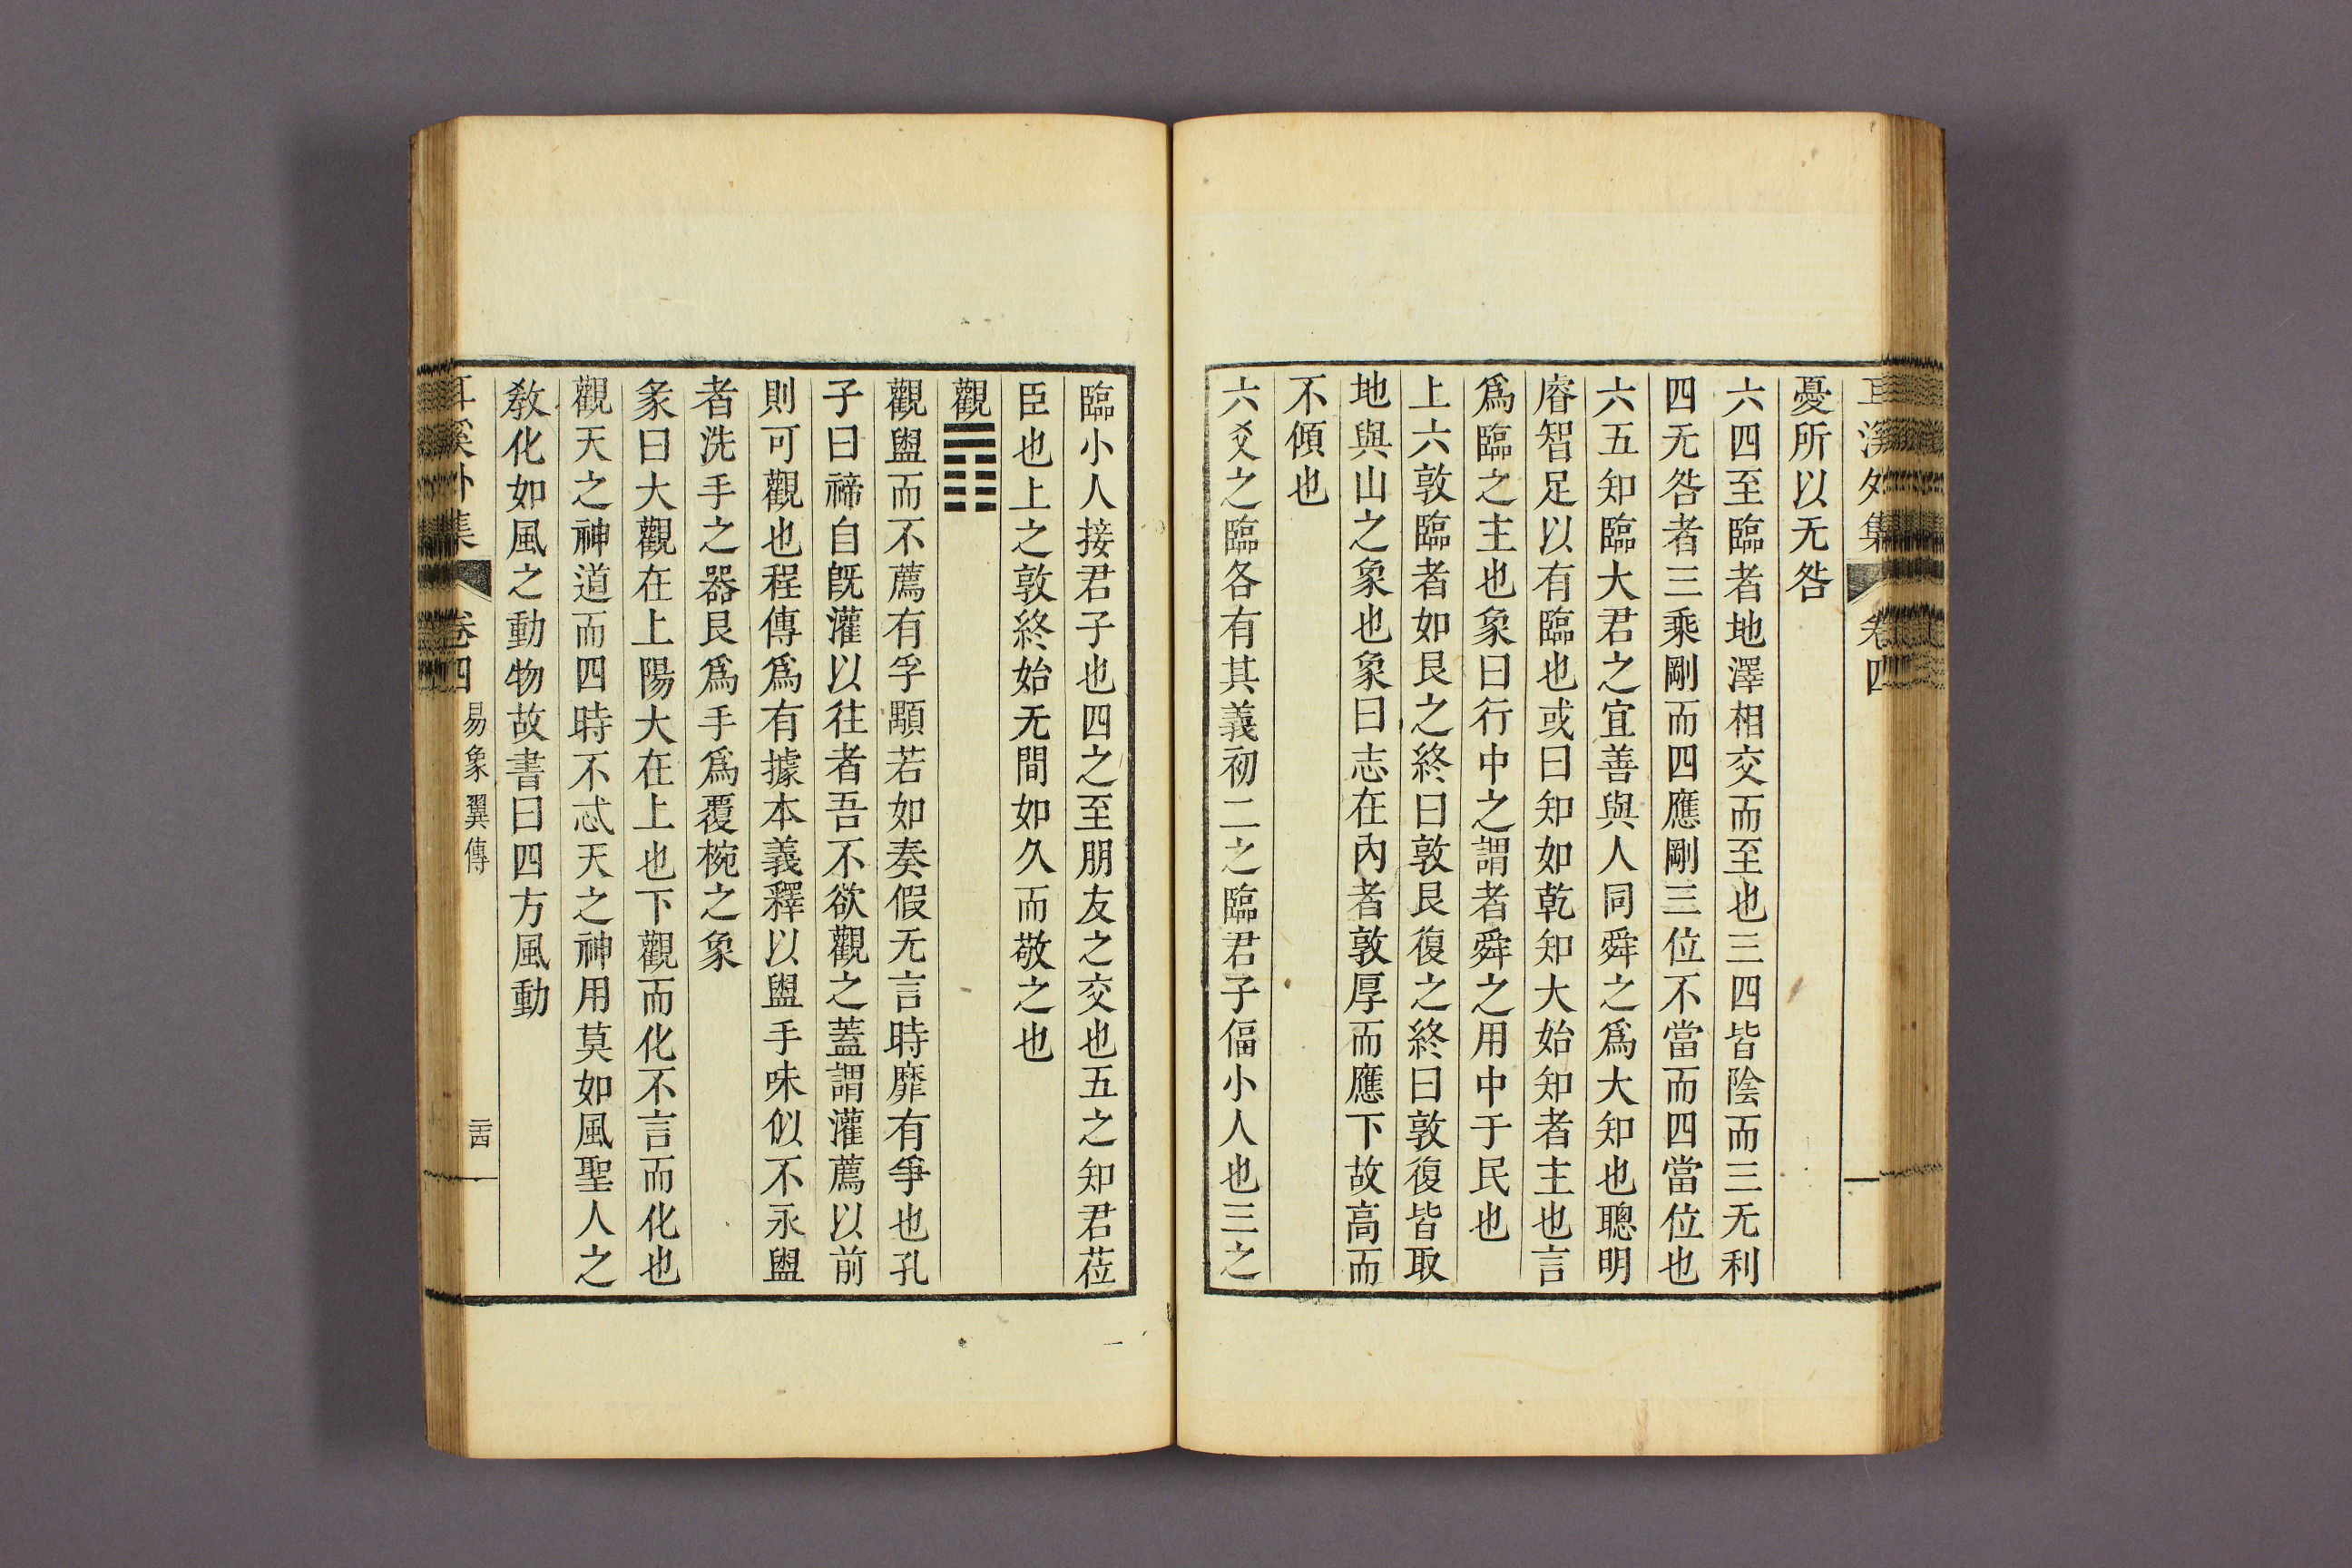 耳溪外集 卷四
憂所以无咎
六四至臨者地澤相交而至也三四皆陰而三无利
四无咎者三乘剛而四應剛三位不當而四當位也
六五知臨大君之宜善與人同舜之爲大知也聰明
睿智足以有臨也或曰知如乾知大始知者主也言
爲臨之主也象曰行中之謂者舜之用中于民也
上六敦臨者如艮之終曰敦艮復之終曰敦復皆取
地與山之象也象曰志在內者敦厚而應下故高而
不傾也
六爻之臨各有其義初二之臨君子偪小人也三之
臨小人接君子也四之至朋友之交也五之知君莅
臣也上之敦終始无間如久而敬之也
觀
觀盥而不薦有孚顒若如奏假无言時靡有爭也孔
子曰禘自旣灌以往者吾不欲觀之蓋謂灌薦以前
則可觀也程傳爲有據本義釋以盥手味似不永盥
者洗手之器艮爲手爲覆椀之象
彖曰大觀在上陽大在上也下觀而化不言而化也
觀天之神道而四時不忒天之神用莫如風聖人之
敎化如風之動物故書曰四方風動
耳溪外集 卷四 易象翼傳 二十四